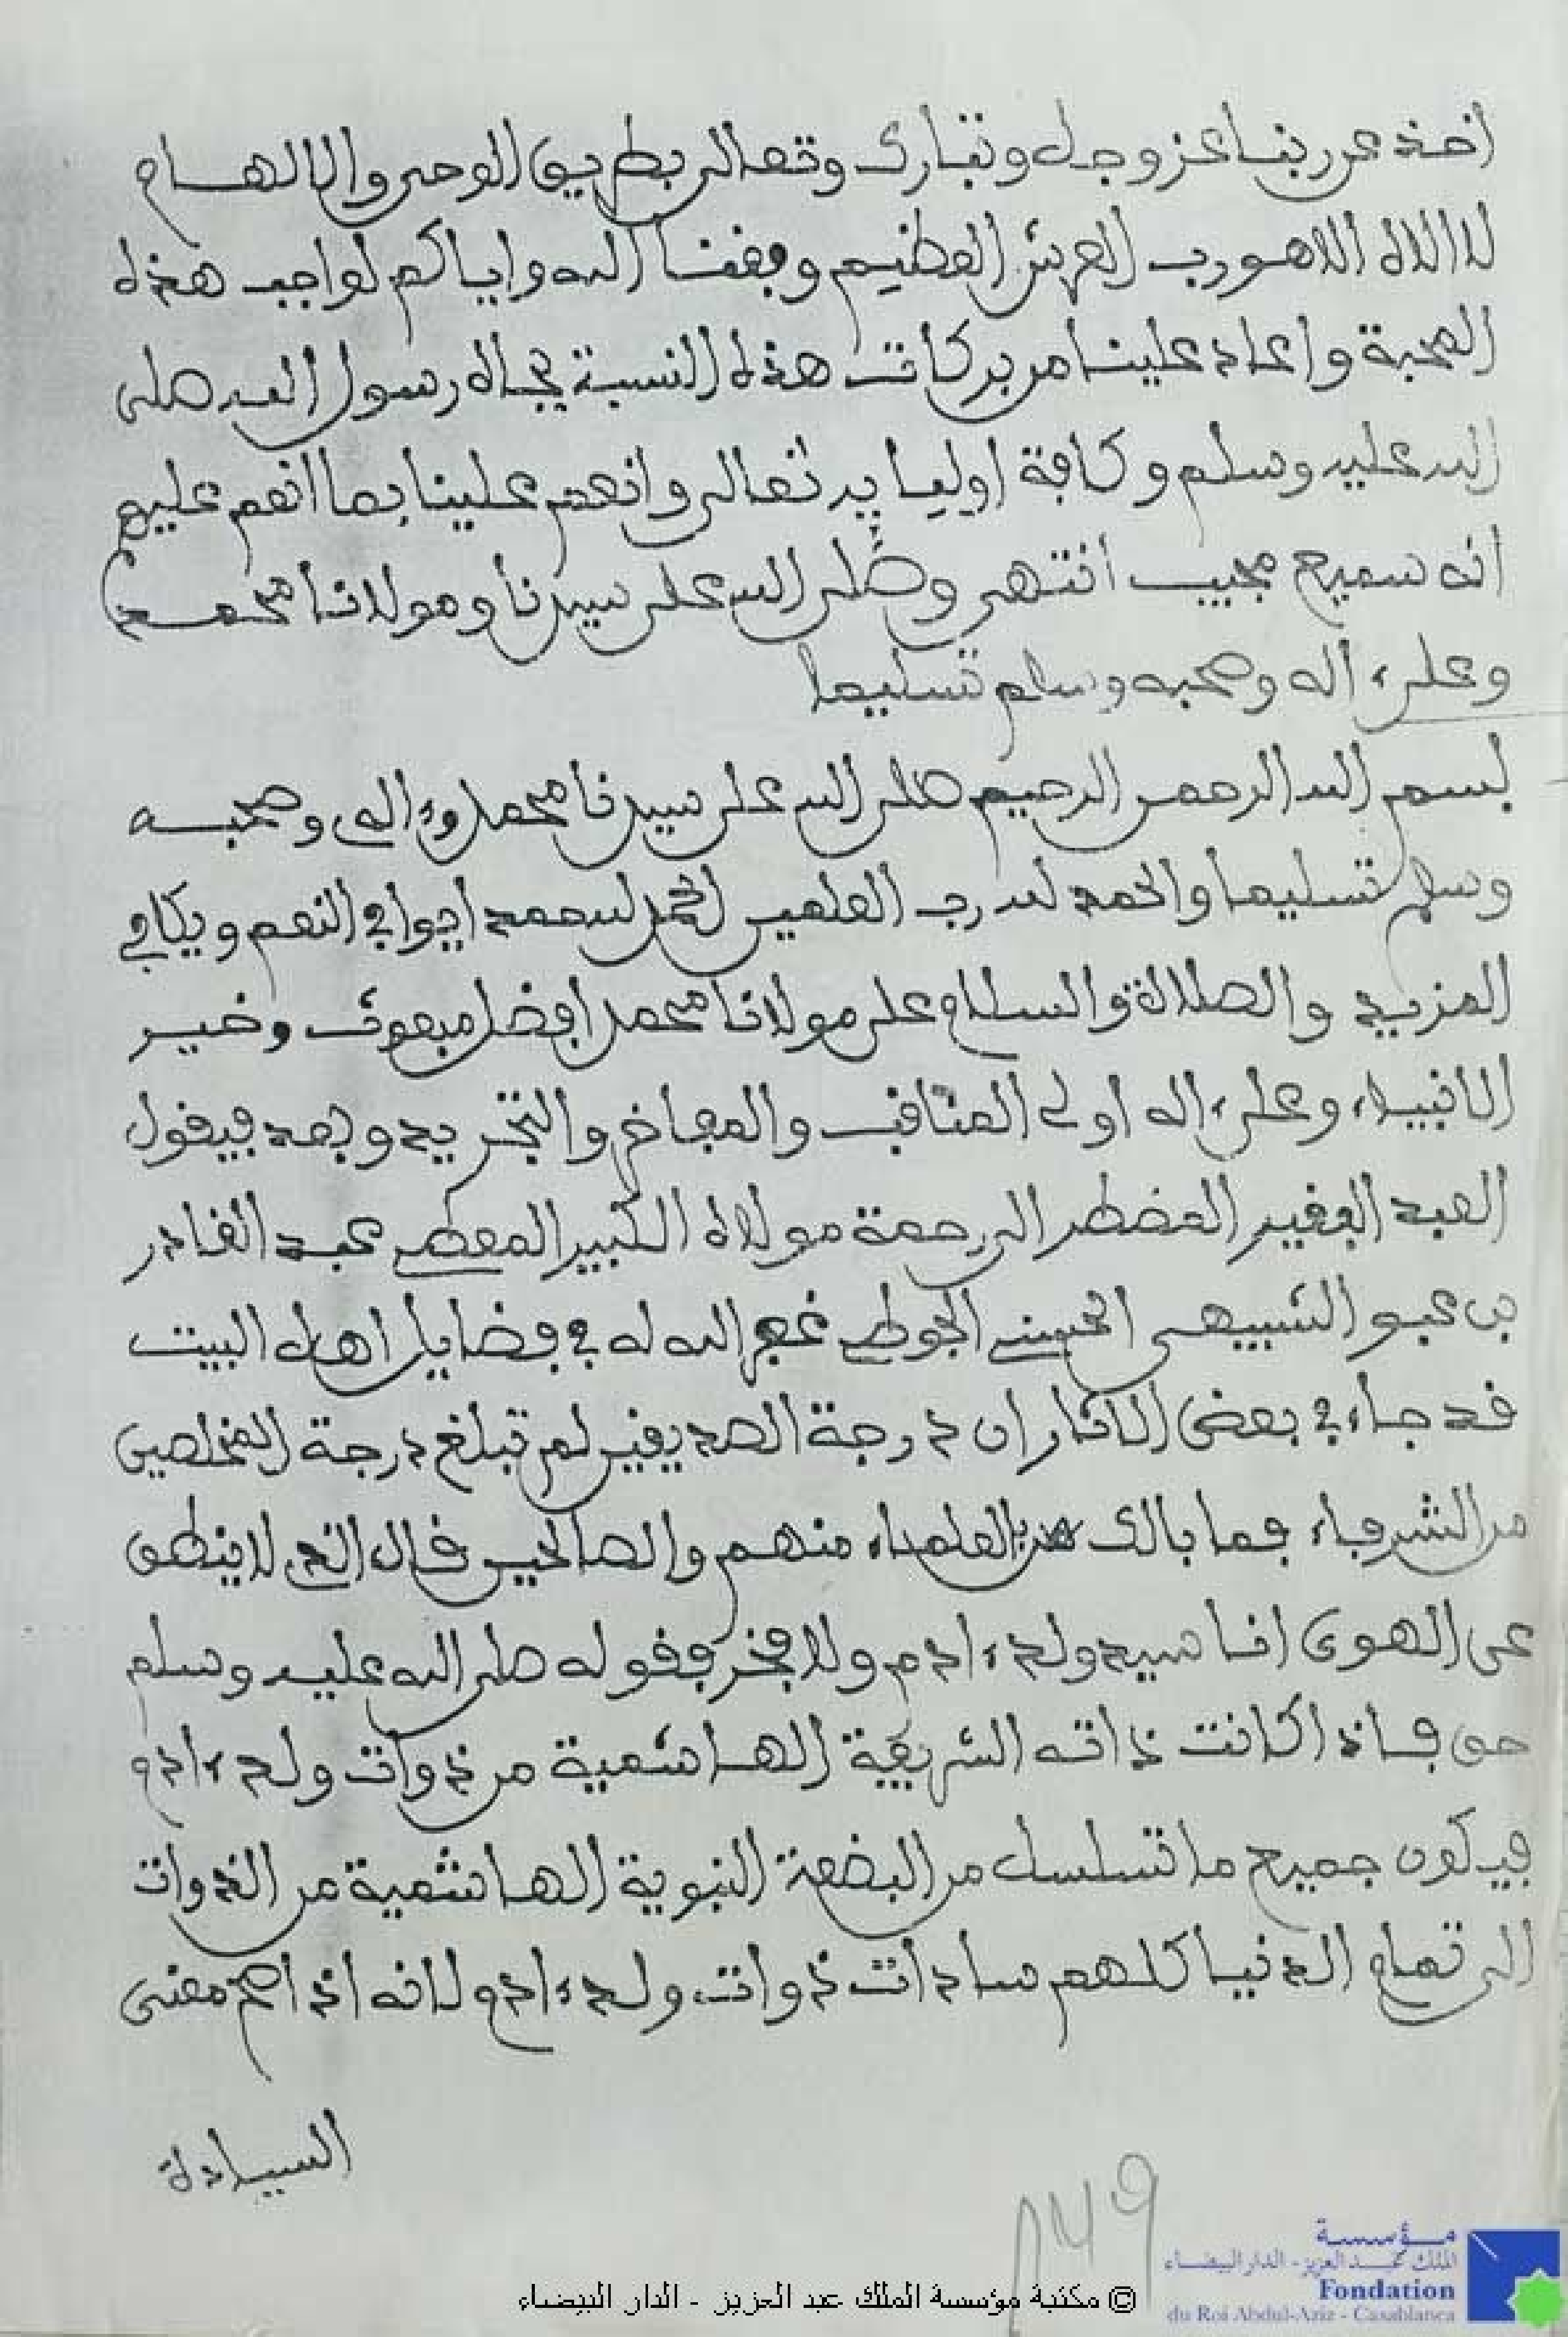 اخذ عن ربنا عز وجل وتبارك وتعالى بطريق الوحي والالهام
لا الاه الا هو رب العرش العظيم وفقنا الله واياكم لواجب هذه
الصحبة واعاد علينا من بركات هذه النسبة بجاه رسول الله صلى
الله عليه وسلم وكافة اوليايه تعالى وانعم علينا بما انعم عليهم
انه سميع مجيب انتهى وصلى الله على سيدنا ومولانا محمد
وعلى ءاله وصحبه وسلم تسليما
بسم الله الرحمن الرحيم صلى الله على سيدنا محمد وءاله وصحبه
وسلم تسليما والحمد لله رب العلمين الحمد لله حمدا يوافي النعم ويكافي
المزيد والصلاة والسلام على مولانا محمد افضل مبعوث وخير
الانبياء وعلى ءاله اولى المناقب والمفاخر والتجريد وبعد فيقول
العبد الفقير المضطر الى رحمة مولاه الكبير المعطي عبد القادر
بن عبو الشبيهي الحسني الجوطي غفر الله له في فضايل اهل البيت
قد جاء في بعض الاثار ان درجة الصديقين لم تبلغ درجة المخلصين
من الشرفاء فما بالك بالعلماء منهم والصالحين قال الذي لا ينطق
عن الهوى انا سيد ولد ءادم ولا فخر فقوله صلى الله عليه وسلم
حق فاذا كانت ذاته الشريفة الهاشمية من ذوات ولد ءادم
فيكون جميع ما تسلسل من البضعة النبوية الهاشمية من الذوات
الى تمام الدنيا كلهم سادات ذوات ولد ءادم لانه اذا صح معنى
السيادة
مؤسسة
الملك عبد العزيز - الدار البيضاء
Fondation
du Roi Abdul-Aziz - Casablanca
© مكتبة مؤسسة الملك عبد العزيز - الدار البيضاء